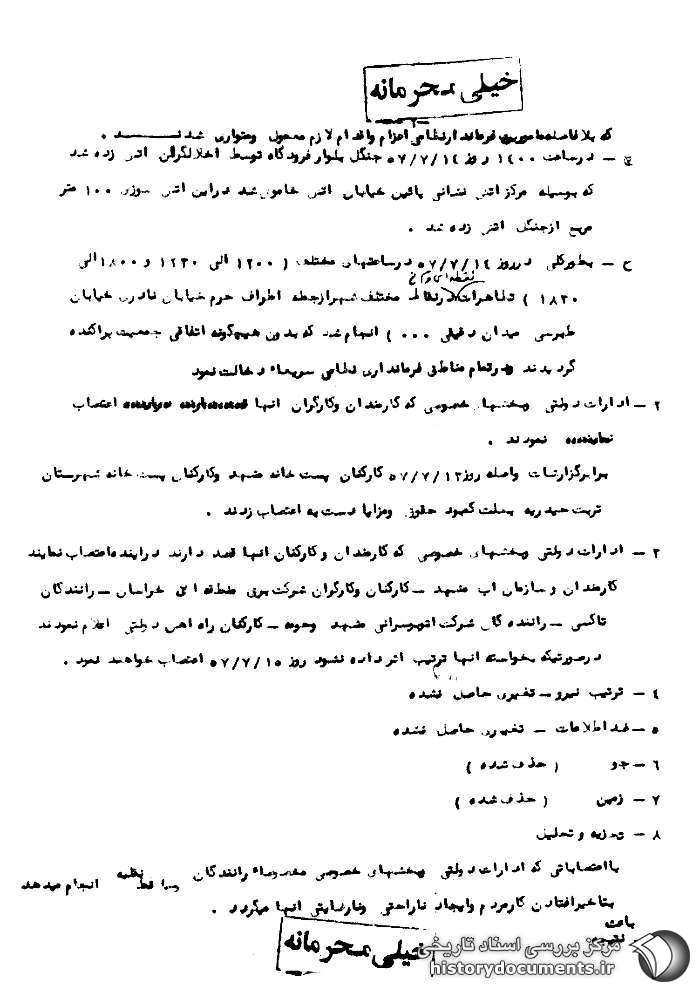 خیلی محرمانه
که بلافاصله مامورین فرماندار نظامی اعزام واقدام لازم معمول ومتواری شدنـــــد .
چ – درساعت ۱۴۰۰ روز ۵۷/۷/۱۴ جنگل بلوار فرودگاه توسط اخلالگران اتش زده شد
که بوسیله مرکز اتش نشانی پائین خیابان اتش خاموش شد دراین اتش سوزی ۱۰۰ متر
مربع ازجنگل اتش زده شد .
ح – بطورکلی درروز ۵۷/۷/۱۴ درساعتهای مختلف ( ۱۲۰۰ الی ۱۲۳۰ و ۱۸۰۰الی
۱۸۳۰ ) تظاهرات درنقاط مختلف شهرازجمله اطراف حرم خیابان نادری خیابان
طبرسی میدان دقیقی ۰۰۰ ) انجام شد که بدون هیچگونه اتفاقی جمعیت پراکنده
گردیدند ودرتمام مناطق فرمانداری نظامی سریعاء دخالت نمود
۲ – ادارات دولتی وبخشهای خصوصی که کارمندان وکارگران انها اعتصاب
نمودند .
برابرگزارشات واصله روز ۵۷/۷/۱۳ کارکنان پست خانه مشهد وکارکنان پست خانه شهرستان
تربت حیدریه بعلت کمبود حقوق ومزایا دست به اعتصاب زدند .
۳ – ادارات دولتی وبخشهای خصوصی که کارمندان و کارکنان انها قصد دارند درایندهاعتصاب نمایند
کارمندان و سازمان اب مشهد – کارکنان وکارگران شرکت برق منطقه ائی خراسان – رانندگان
تاکسی – راننده گان شرکت اتوبوسرانی مشهد وحومه – کارکنان راه اهن دولتی اعلام نمودند
درصورتیکه بخواسته انها ترتیب اثر داده نشود روز ۵۷/۷/۱۵ اعتصاب خواهند نمود .
۴ – ترتیب نیرو – تغییری حاصل نشده
۵ – ضداطلاعات – تغییری حاصل نشده
۶ – جو ( حذف شده )
۷ – زمین ( حذف شده )
۸ – تجزیه و تحلیل
بااعتصاباتی که ادارات دولتی وبخشهای خصوصی مخصوصاء رانندگان وسائط نقلیه انجام میدهد
باعث
بتاخیرافتادن کارمردم وایجاد ناراحتی ونارضایتی انها میگردد .
خیلی محرمانه
مرکز بررسی اسناد تاریخی
historydocuments.ir